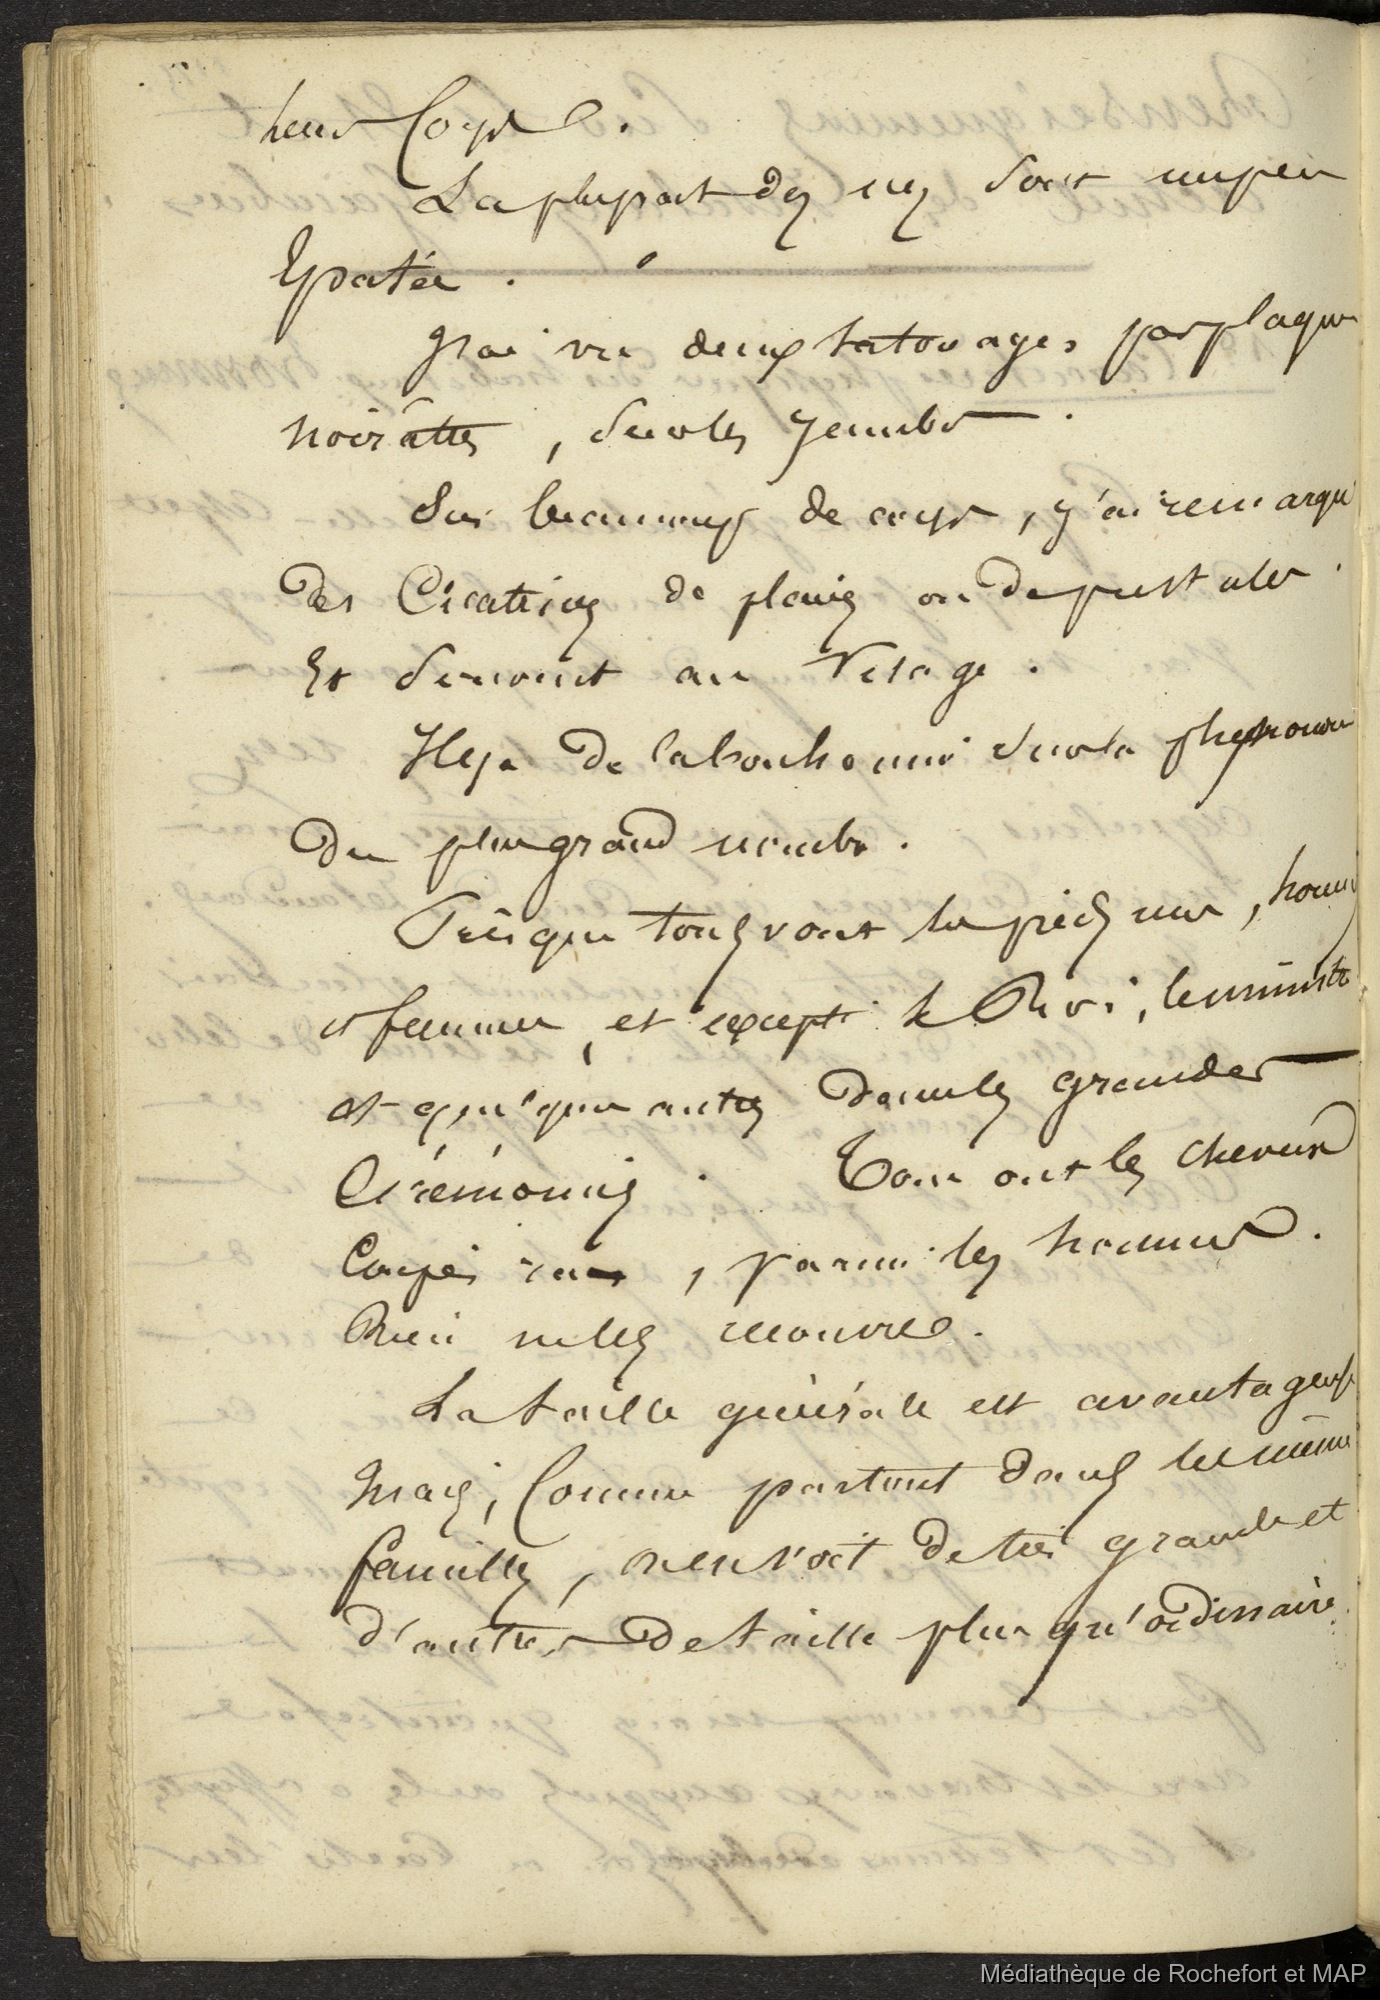 leur Corps.
La plupart des nez sont un peu
Epatés.
J'ai vu deux tatouages par plaques
noirâttes, sur les jambes.
Sur beaucoup de corps, j'ai remarqué
des Cicatrices de plaies ou de pustules.
Et souvent au visage.
Il y a de la bonhomie sur la physionomie
du plus grand nombre.
Presque tous vont les pieds nus, hommes
et femmes, et excepté le Roi, le ministre
et quelques autres dans les grandes
Cérémonies. Tous ont les cheveux
Coupés ras, parmi les hommes.
Rien ne les couvre.
La taille générale est avantageuse
mais, Comme partout dans les mêmes
familles, on en voit de très grands et
d'autres de taille plus qu'ordinaire.
Médiathèque de Rochefort et MAP